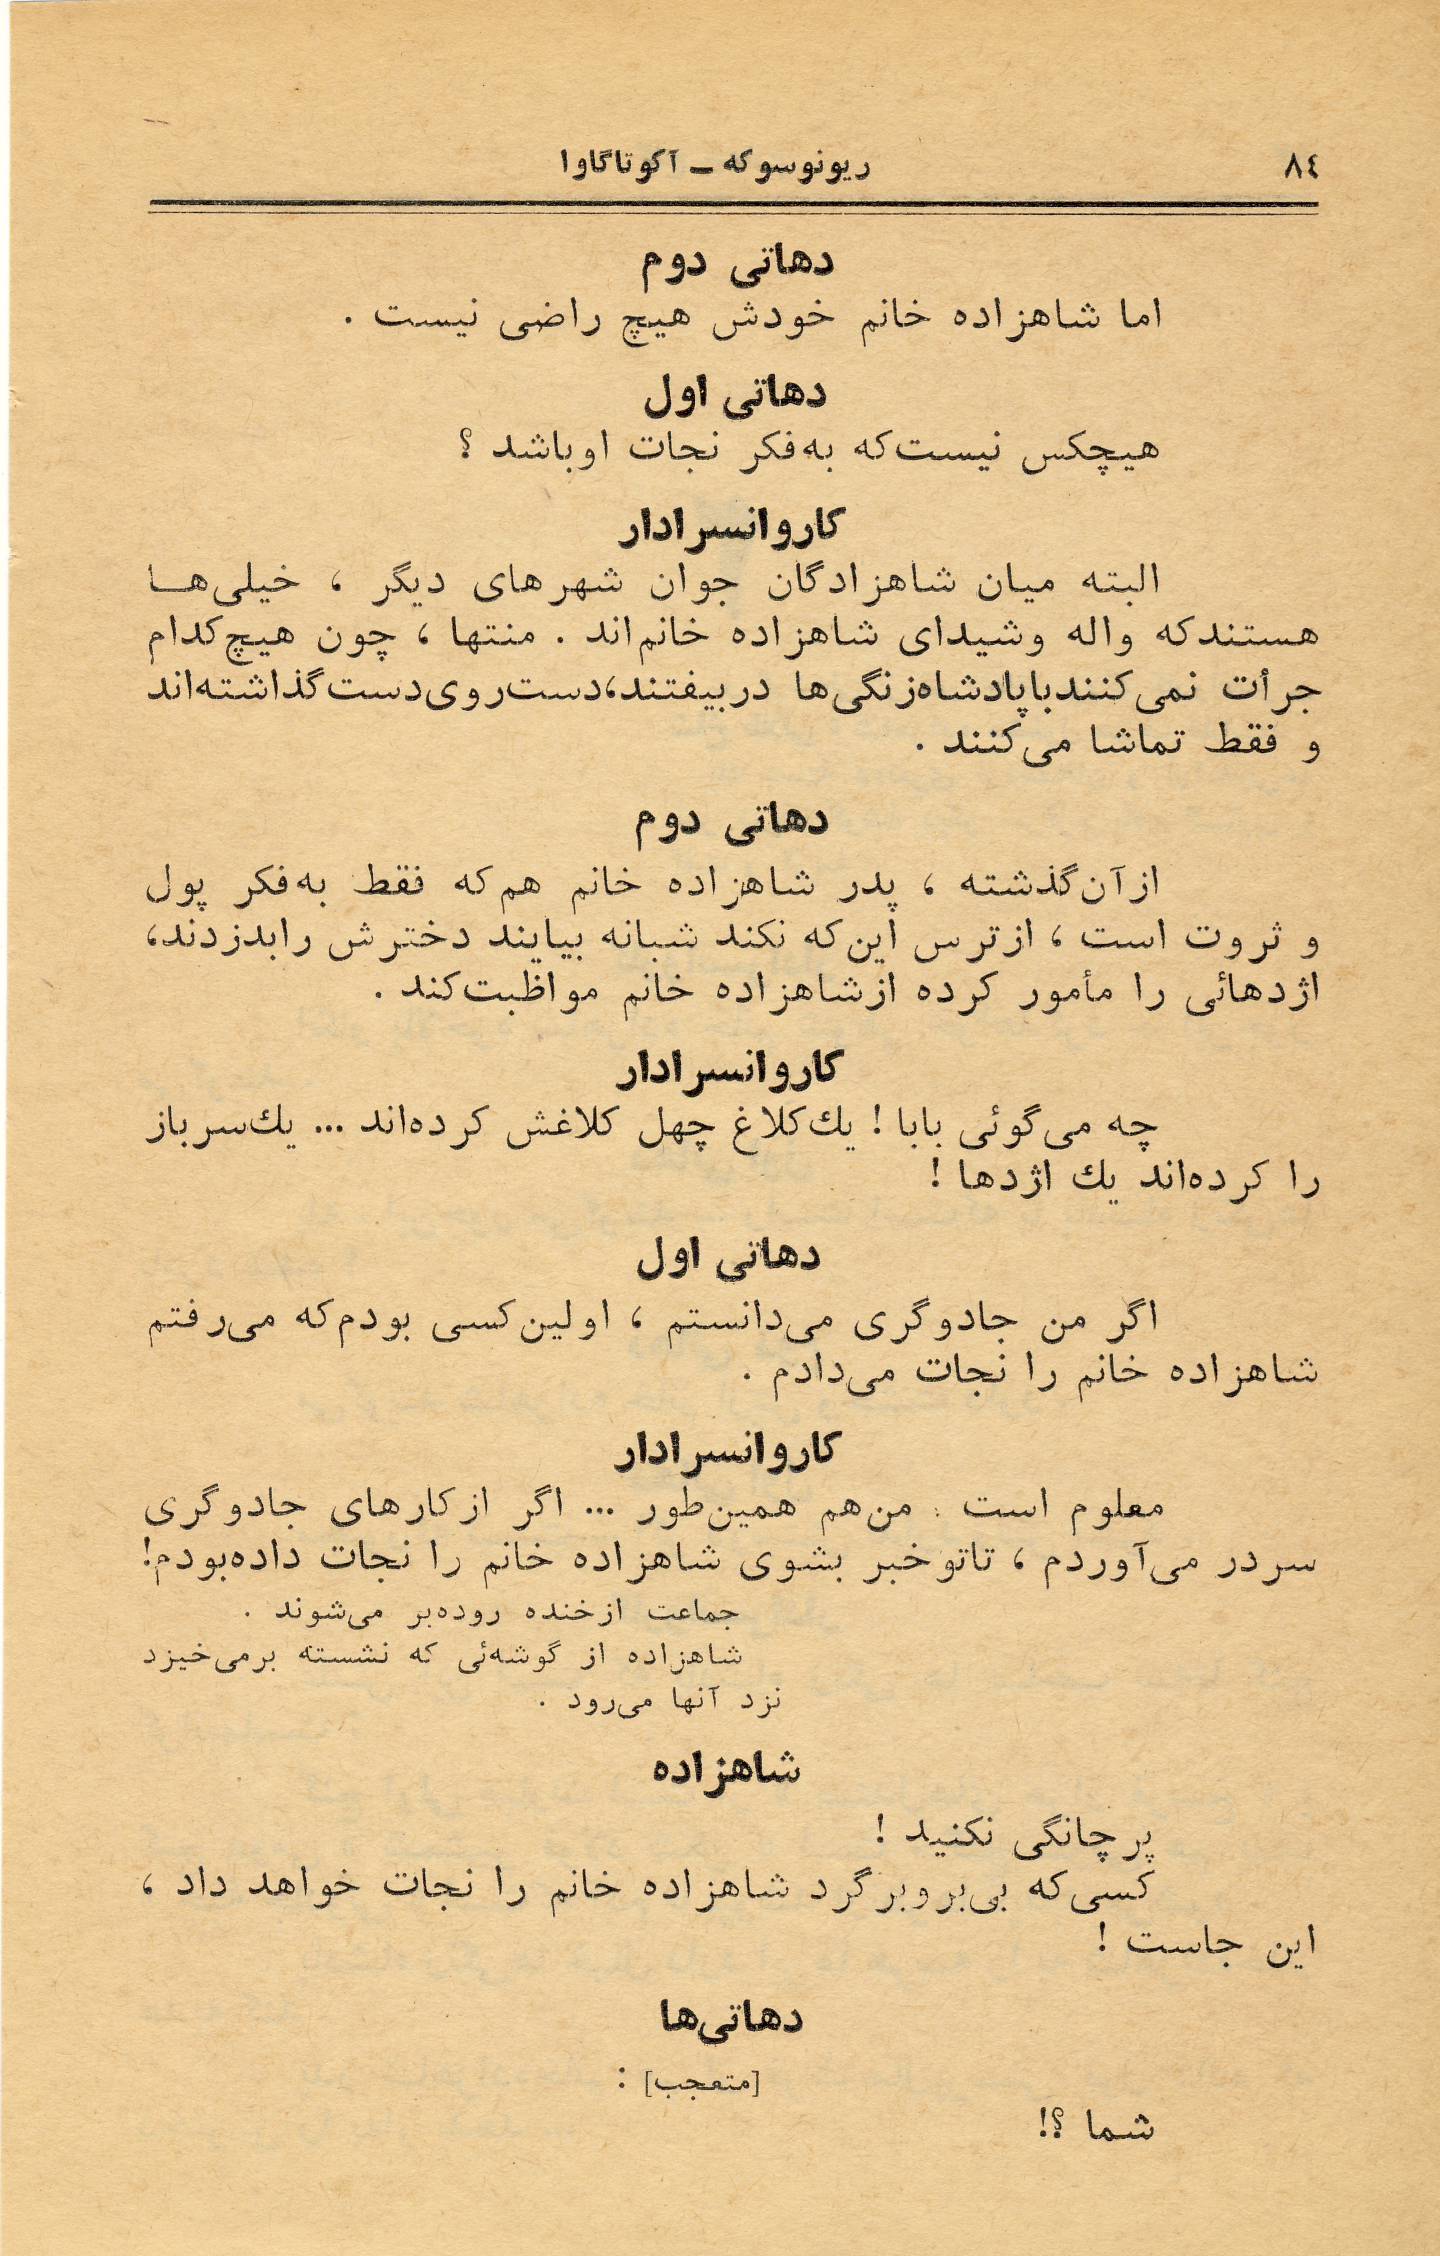 ۸٤
ریونوسوکه ــ آکوتاگاوا
دهاتی دوم
اما شاهزاده خانم خودش هیچ راضی نیست .
دهاتی اول
هیچکس نیست‌که به‌فکر نجات اوباشد ؟
کاروانسرادار
البته میان شاهزادگان جوان شهرهای دیگر ، خیلی‌هــا
هستندکه واله وشیدای شاهزاده خانم‌اند . منتها ، چون هیچ‌کدام
جرأت نمی‌کنندباپادشاه‌زنگی‌ها دربیفتند،دست‌روی‌دست‌گذاشته‌اند
و فقط تماشا می‌کنند .
دهاتی دوم
ازآن‌گذشته ، پدر شاهزاده خانم هم‌که فقط به‌فکر پول
و ثروت است ، ازترس این‌که نکند شبانه بیایند دخترش رابدزدند،
اژدهائی را مأمور کرده ازشاهزاده خانم مواظبت‌کند .
کاروانسرادار
چه می‌گوئی بابا ! یك‌کلاغ چهل کلاغش کرده‌اند ... یك‌سرباز
را کرده‌اند یك اژدها !
دهاتی اول
اگر من جادوگری می‌دانستم ، اولین‌کسی بودم‌که می‌رفتم
شاهزاده خانم را نجات می‌دادم .
کاروانسرادار
معلوم است . من‌هم همین‌طور ... اگر ازکارهای جادوگری
سردر می‌آوردم ، تاتوخبر بشوی شاهزاده خانم را نجات داده‌بودم!
جماعت ازخنده روده‌بر می‌شوند .
شاهزاده از گوشه‌ئی که نشسته برمی‌خیزد
نزد آنها می‌رود .
شاهزاده
پرچانگی نکنید !
کسی‌که بی‌بروبرگرد شاهزاده خانم را نجات خواهد داد ،
این جاست !
دهاتی‌ها
[متعجب] :
شما ؟!